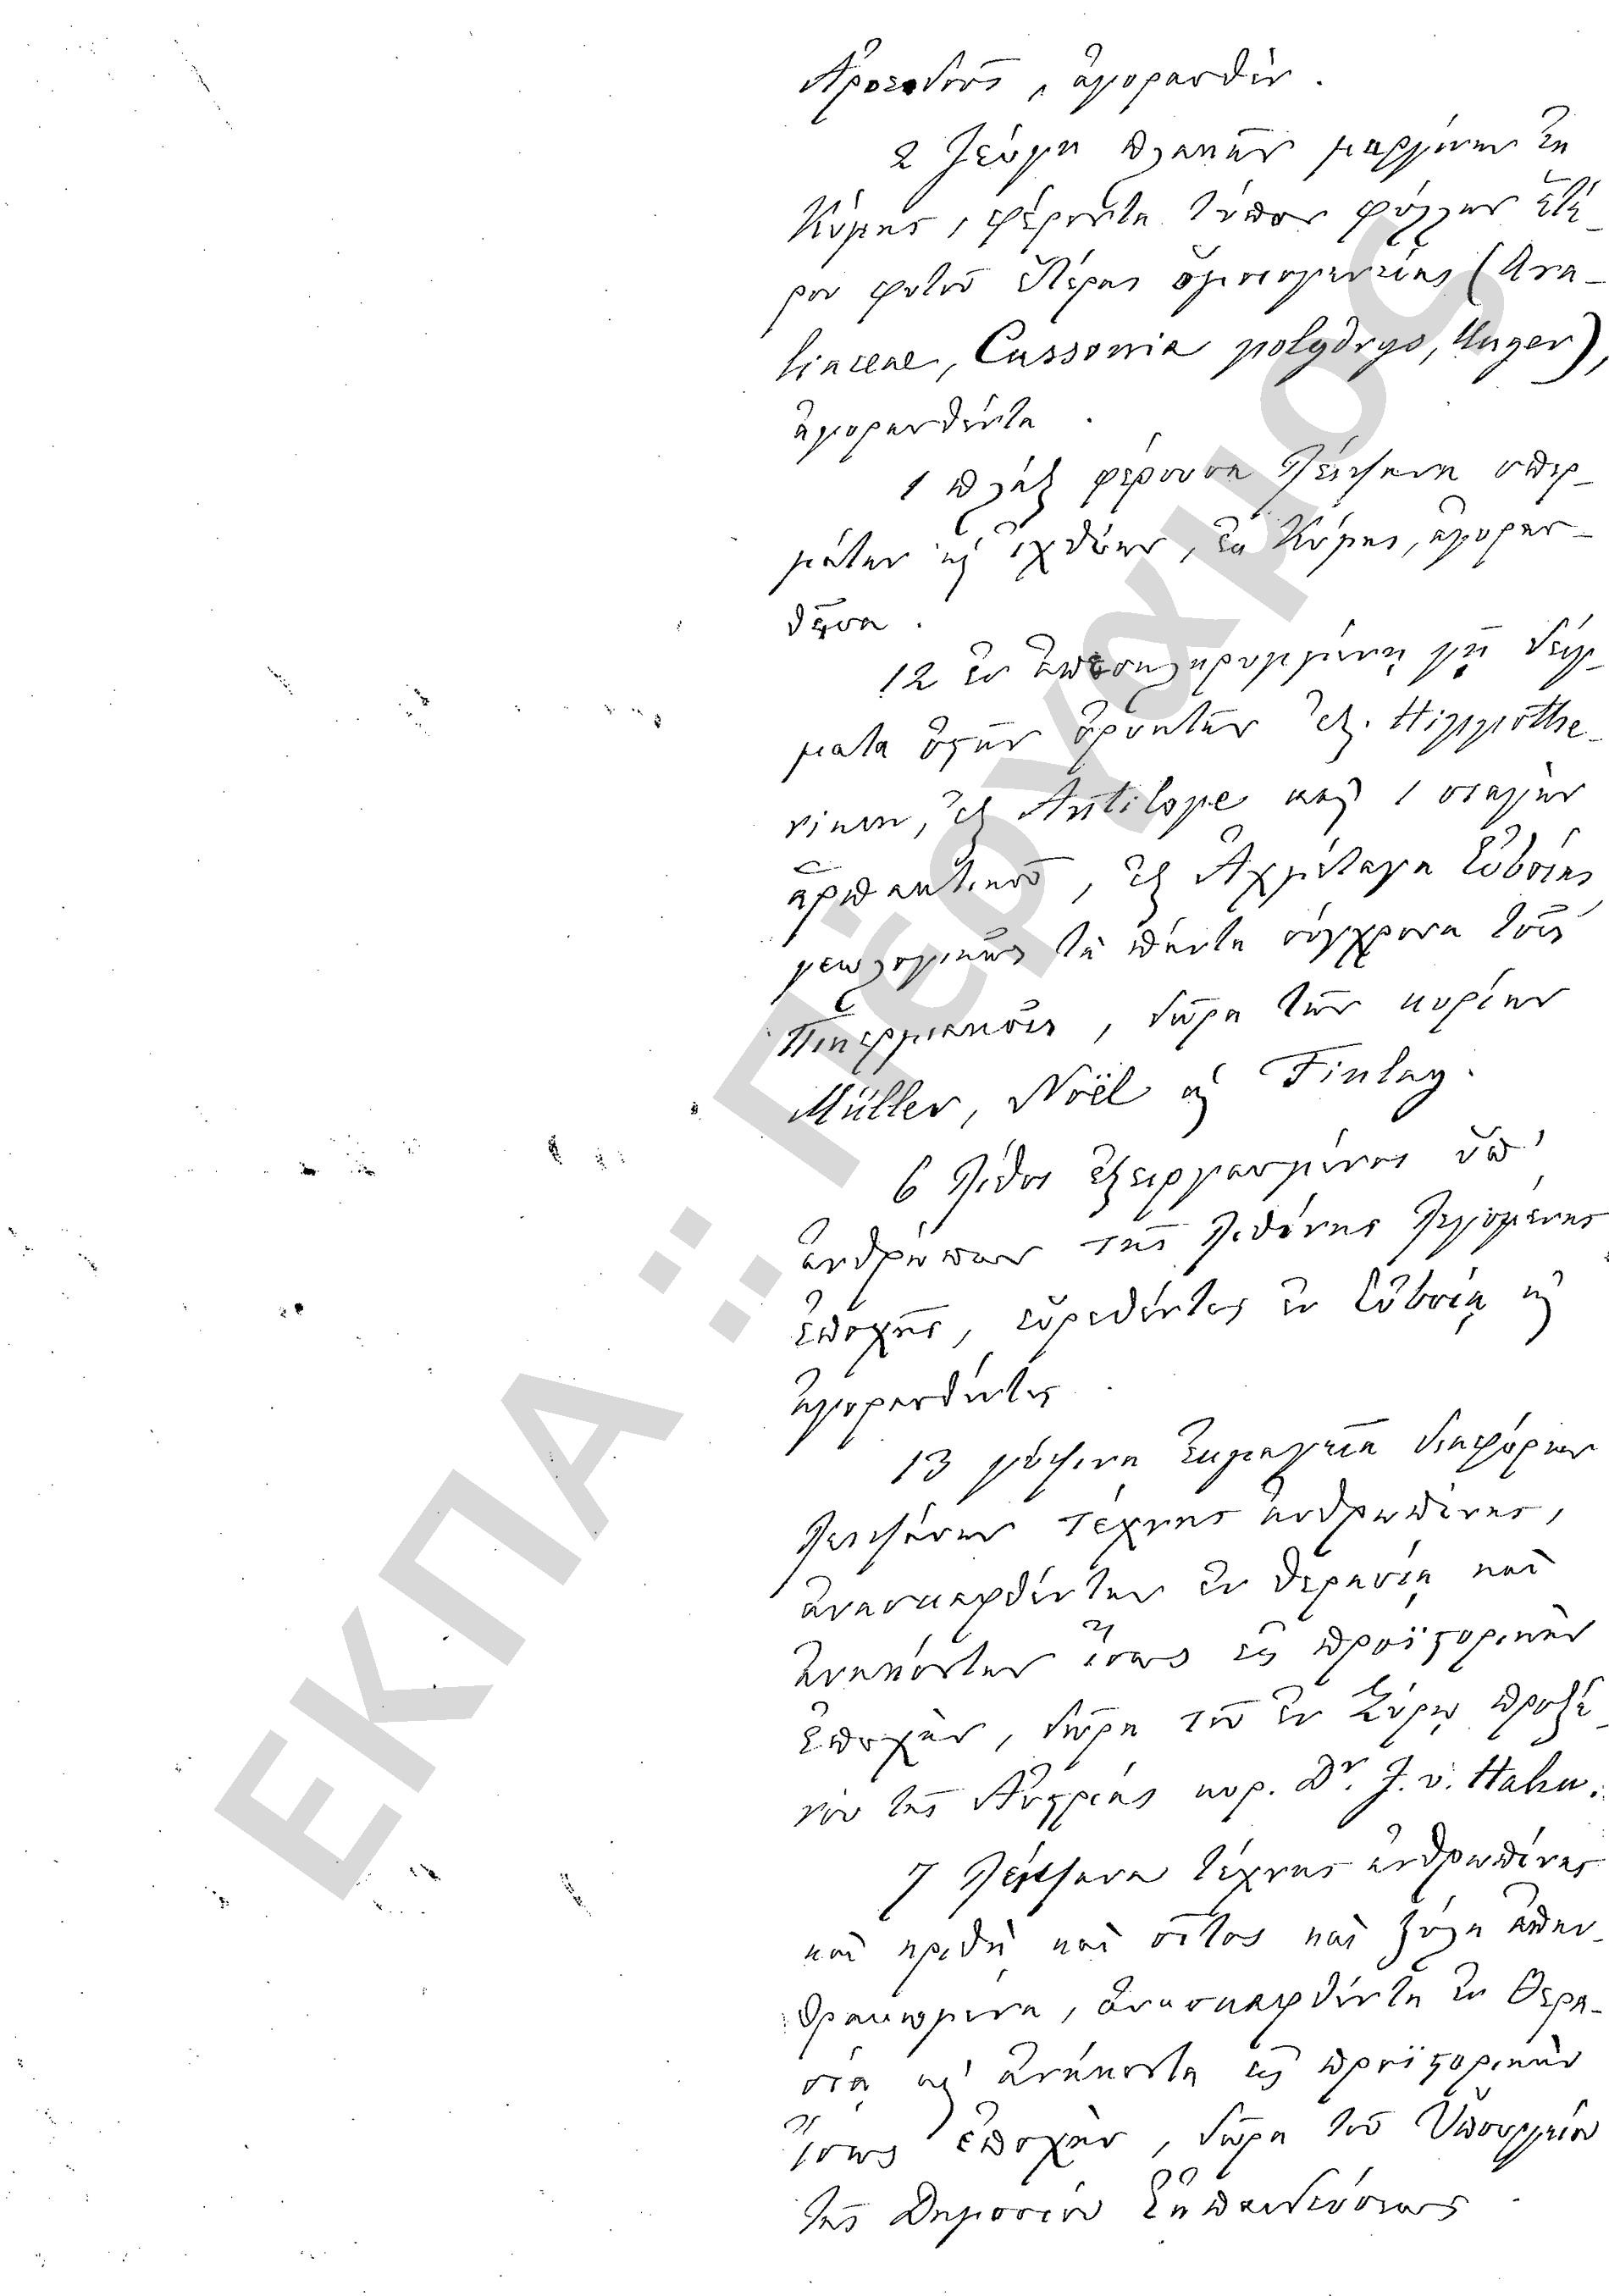 ἀγορασθέν.
2 ζεύγη πλακῶν μαργῶν ἐκ
Κύμης, φέροντα τύπον φύλλων ἑτέ-
ρου φυτοῦ τῆς οἰκογενείας (Ara-
liaceae, Cussonia polydrys, Unger),
ἀγορασθέντα.
1 πλὰξ φέρουσα λείψανα σπερ-
μάτων καὶ ἰχθύων, ἐκ Κύμης, ἀγορασ-
θεῖσα.
12 ἐν ἀπεσκληρυμμένῃ γῇ δείγ-
ματα ὀστῶν ὀρυκτῶν ἐξ. Hippothe-
rium, ἐξ Antilope καὶ 1 σιαγὼν
ἁρπακτικοῦ, ἐξ Ἀχμέταγα Εὐβοίας
γεωλογικῶς τὰ πάντα σύγχρονα τοῖς
Πικερμικοῖς, δῶρα τῶν κυρίων
Müller, Noël καὶ Finlay.
6 λίθοι ἐξειργασμένοι ὑπ'
ἀνθρώπων τῆς λιθίνης λεγομένης
ἐποχῆς, εὑρεθέντες ἐν Εὐβοίᾳ καὶ
ἀγορασθέντες.
13 γύψινα ἐκμαγεῖα διαφόρων
λειψάνων τέχνης ἀνθρωπίνης,
ἀνασκαφθέντων ἐν Θηρασίᾳ καὶ
ἀνηκόντων ἴσως εἰς προϊστορικὴν
ἐποχήν, δῶρα τοῦ ἐν Σύρῳ προξέ-
νου τῆς Αὐστρίας κυρ. Dr. J. v. Hahn.
7 λείψανα τέχνης ἀνθρωπίνης
καὶ κριθὴ καὶ σῖτος καὶ ξύλα ἀπην-
θρακωμένα, ἀνασκαφθέντα ἐν Θηρα-
σίᾳ καὶ ἀνήκοντα εἰς προϊστορικὴν
ἴσως ἐποχήν, δῶρα τοῦ Ὑπουργείου
τῆς Δημοσίου Ἐκπαιδεύσεως.
ΕΚΠΑ Πέργαμος